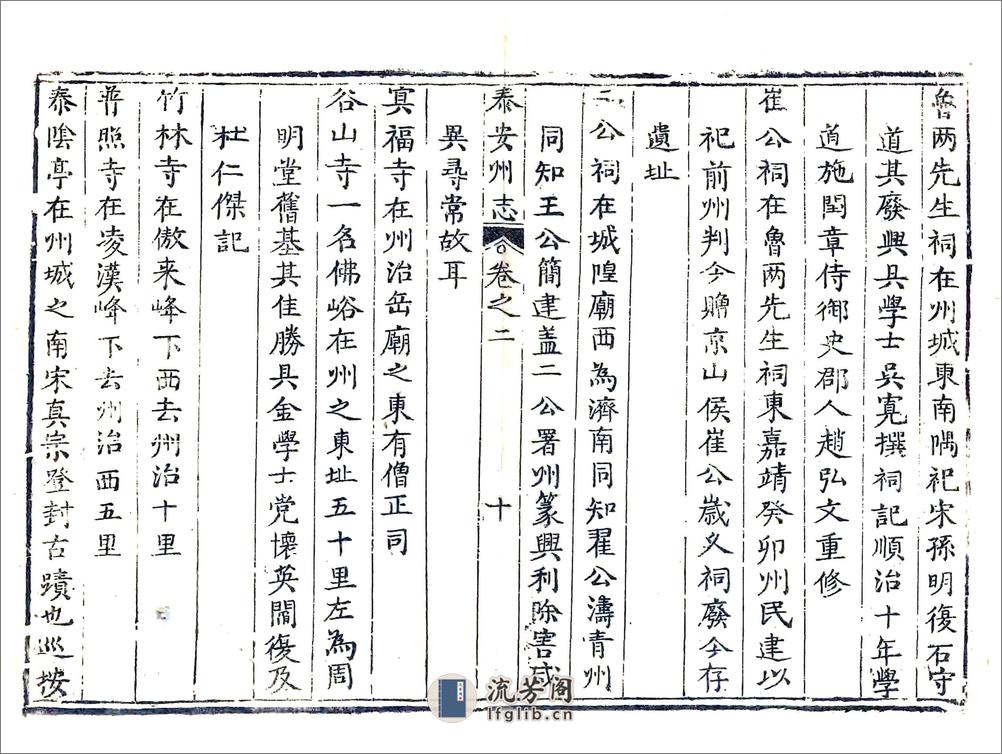 魯两先生祠在州城東南隅祀宋孫明復石守
道其廢興具學士吳寬撰祠記順治十年學
道施閏章侍御史郡人趙弘文重修
崔公祠在魯两先生祠東嘉靖癸卯州民建以
祀前州判今贈京山侯崔公歲义祠廢今存
遺址
二公祠在城隍廟西為濟南同知翟公濤青州
同知王公簡建蓋二公署州篆興利除害咸
泰安州志 卷之二 十
異尋常故耳
冥福寺在州治岳廟之東有僧正司
谷山寺一名佛峪在州之東址五十里左為周
明堂舊基其佳勝具金學士党懷英閻復及
杜仁傑記
竹林寺在傲来峰下西去州治十里
普照寺在凌漢峰下去州治西五里
泰陰亭在州城之南宋真宗登封古蹟也巡按
流芳阁
lfglib.cn